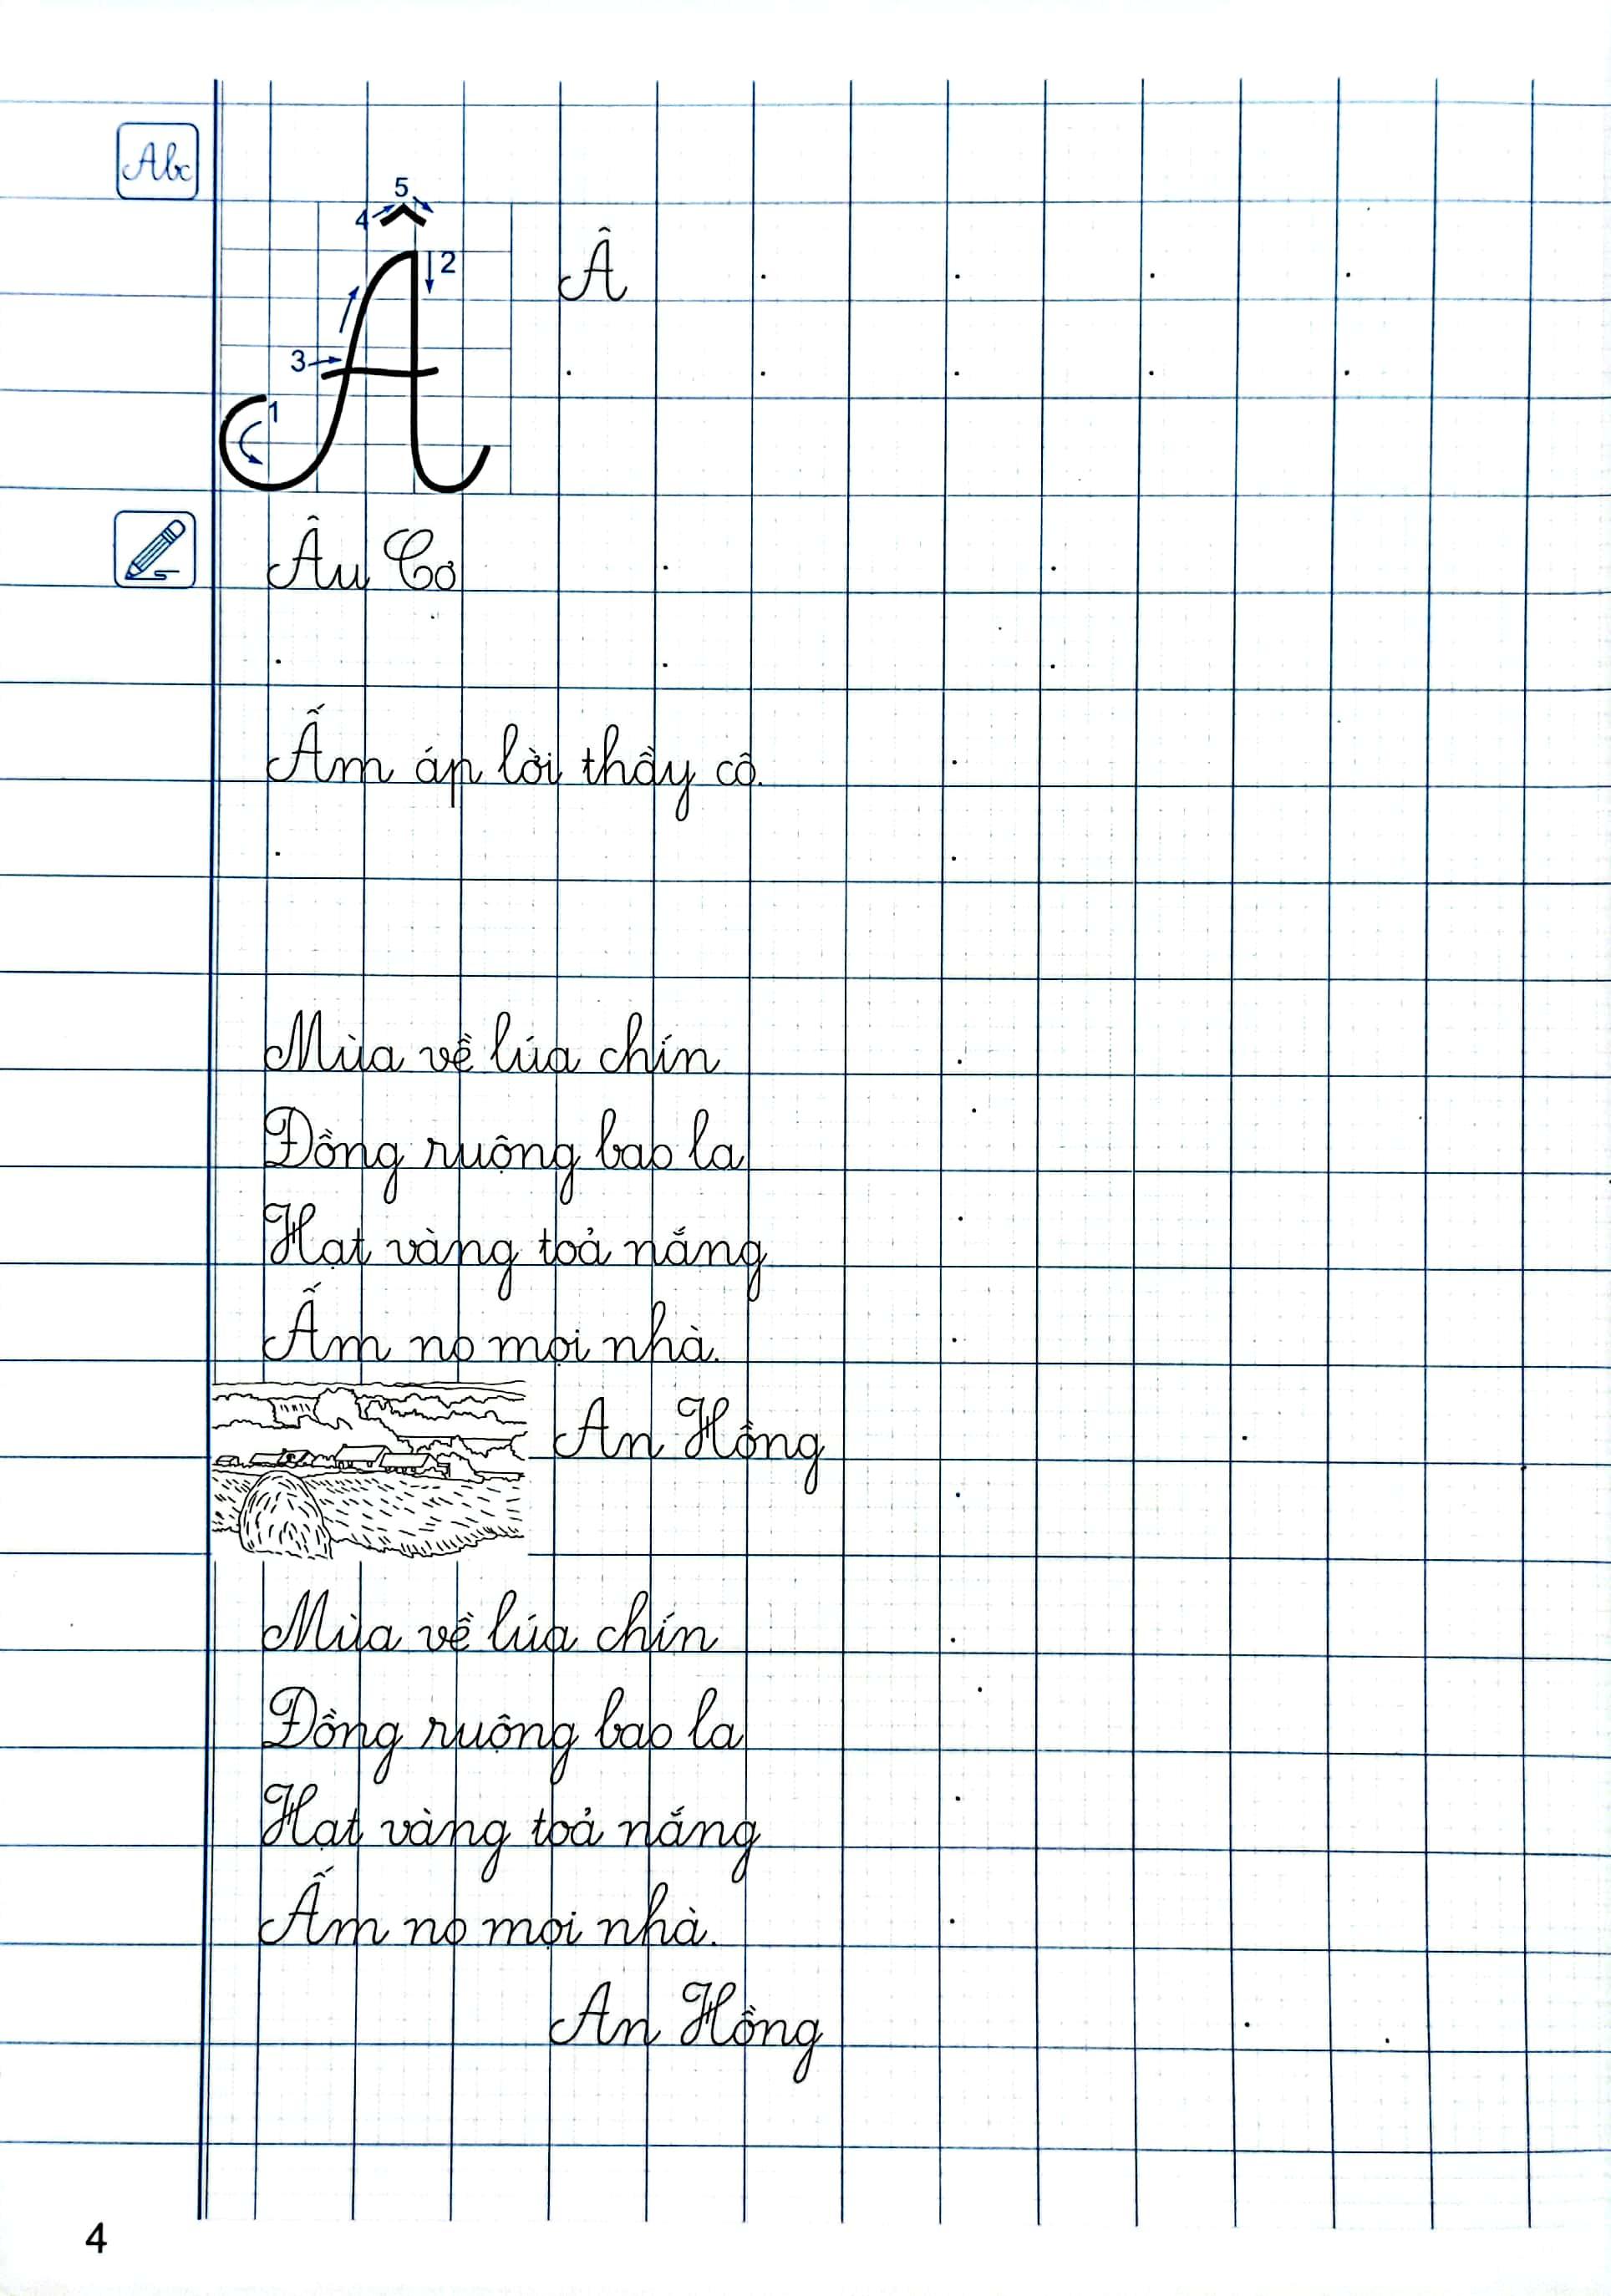 Abc
5
4
2
3
1
Â
Âu Cơ
Ấm áp lời thầy cô.
Mùa về lúa chín
Đồng ruộng bao la
Hạt vàng toả nắng
Ấm no mọi nhà.
An Hồng
Mùa về lúa chín
Đồng ruộng bao la
Hạt vàng toả nắng
Ấm no mọi nhà.
An Hồng
4